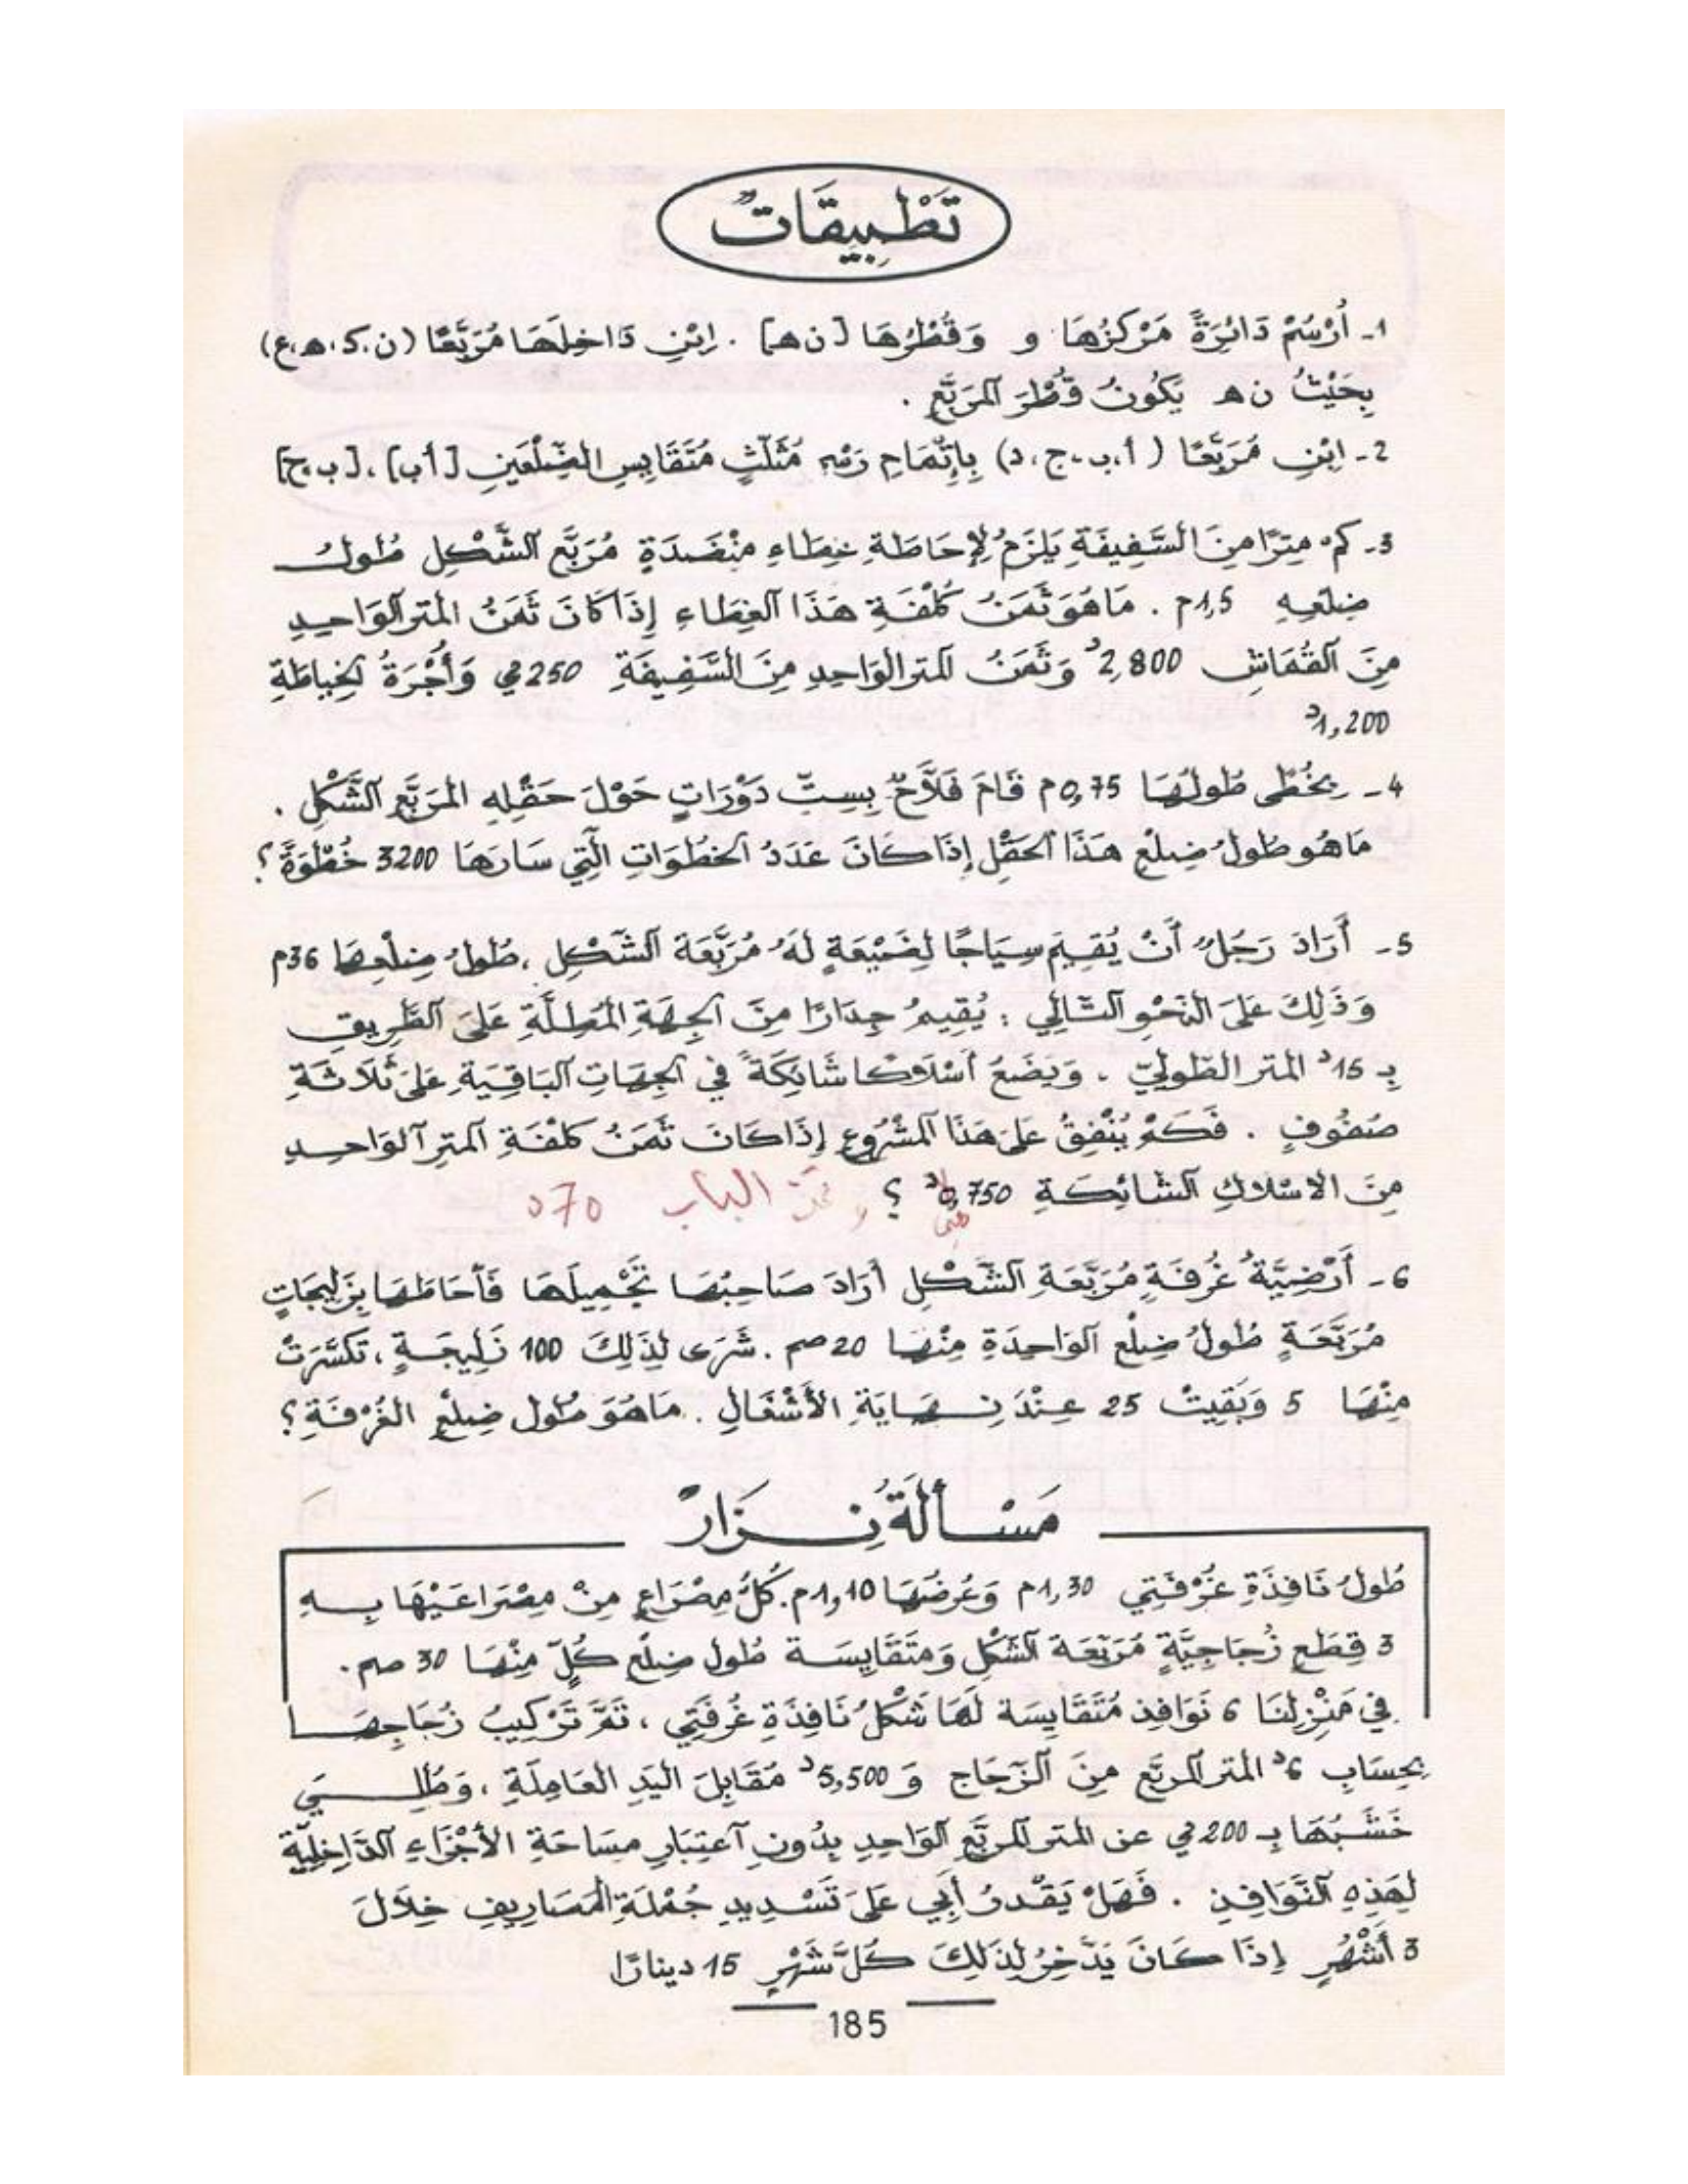 تَطْبِيقَاتٌ
1- أُرْسُمْ دَائِرَةً مَرْكَزُهَا و وَقُطْرُهَا [ن هـ] . اِبْنِ دَاخِلَهَا مُرَبَّعًا (ن،ك،هـ،ع)
بِحَيْثُ ن هـ يَكُونُ قُطْرَ المُرَبَّعِ .
2- اِبْنِ مُرَبَّعًا (أ،ب،ج،د) بِإِتْمَامِ رَسْمِ مُثَلَّثٍ مُتَقَايِسِ الضِّلْعَيْنِ [أب]،[ب ج]
3- كَمْ مِتْرًا مِنَ السَّفِيفَةِ يَلْزَمُ لِإِحَاطَةِ غِطَاءِ مِنْضَدَةٍ مُرَبَّعِ الشَّكْلِ طُولُ
ضِلْعِهِ 1,5م . مَا هُوَ ثَمَنُ كُلْفَةِ هَذَا الغِطَاءِ إِذَا كَانَ ثَمَنُ المتر الوَاحِدِ
مِنَ القُمَاشِ 2,800د وَثَمَنُ المتر الوَاحِدِ مِنَ السَّفِيفَةِ 250مي وَأُجْرَةُ الخِيَاطَةِ
1,200د
4- بِخُطًى طُولُهَا 0,75م قَامَ فَلاَّحٌ بِسِتِّ دَوْرَاتٍ حَوْلَ حَقْلِهِ المُرَبَّعِ الشَّكْلِ .
مَا هُوَ طُولُ ضِلْعِ هَذَا الحَقْلِ إِذَا كَانَ عَدَدُ الخُطُوَاتِ الَّتِي سَارَهَا 3200 خُطْوَةً ؟
5- أَرَادَ رَجُلٌ أَنْ يُقِيمَ سِيَاجًا لِضَيْعَةٍ لَهُ مُرَبَّعَةَ الشَّكْلِ ، طُولُ ضِلْعِهَا 36م
وَذَلِكَ عَلَى النَّحْوِ التَّالِي : يُقِيمُ جِدَارًا مِنَ الجِهَةِ المُطِلَّةِ عَلَى الطَّرِيقِ
بِـ 15د المتر الطُّولِيّ . وَيَضَعُ أَسْلاَكًا شَائِكَةً فِي الجِهَاتِ البَاقِيَةِ عَلَى ثَلاَثَةِ
صُفُوفٍ . فَكَمْ يُنْفِقُ عَلَى هَذَا المَشْرُوعِ إِذَا كَانَ ثَمَنُ كُلْفَةِ المِتْرِ الوَاحِدِ
مِنَ الاسْلاَكِ الشَّائِكَةِ 0,750د ؟ و ثمن الباب 70د
6- أَرْضِيَّةُ غُرْفَةٍ مُرَبَّعَةِ الشَّكْلِ أَرَادَ صَاحِبُهَا تَجْمِيلَهَا فَأَحَاطَهَا بِزَلِيجَاتٍ
مُرَبَّعَةٍ طُولُ ضِلْعِ الوَاحِدَةِ مِنْهَا 20صم . شَرَى لِذَلِكَ 100 زَلِيجَةٍ ، تَكَسَّرَتْ
مِنْهَا 5 وَبَقِيَتْ 25 عِنْدَ نِهَايَةِ الأَشْغَالِ . مَا هُوَ طُول ضِلْعِ الغُرْفَةِ ؟
مَسْأَلَةُ نِزَارٌ
طُولُ نَافِذَةِ غُرْفَتِي 1,30م وَعُرْضُهَا 1,10م. كُلُّ مِصْرَاعٍ مِنْ مِصْرَاعَيْهَا بِهِ
3 قِطَعٍ زُجَاجِيَّةٍ مُرَبَّعَةَ الشَّكْلِ وَمُتَقَايِسَة طُول ضِلْعِ كُلٍّ مِنْهَا 30 صم .
فِي مَنْزِلِنَا 6 نَوَافِذ مُتَقَايِسَة لَهَا شَكْلُ نَافِذَةِ غُرْفَتِي ، تَمَّ تَرْكِيبُ زُجَاجِهَا
بِحِسَابِ 6د المتر المربَّعِ مِنَ الزُّجَاج وَ 5,500د مُقَابِلَ اليَدِ العَامِلَةِ ، وَطُلِيَ
خَشَبُهَا بِـ 200مي عن المتر المربَّعِ الوَاحِدِ بِدُونِ اعْتِبَارِ مِسَاحَةِ الأَجْزَاءِ الدَّاخِلِيَّةِ
لِهَذِهِ النَّوَافِذِ . فَهَلْ يَقْدِرُ أَبِي عَلَى تَسْدِيدِ جُمْلَةِ المَصَارِيفِ خِلاَلَ
3 أَشْهُرٍ إِذَا كَانَ يَدَّخِرُ لِذَلِكَ كُلَّ شَهْرٍ 15 دينارًا
185